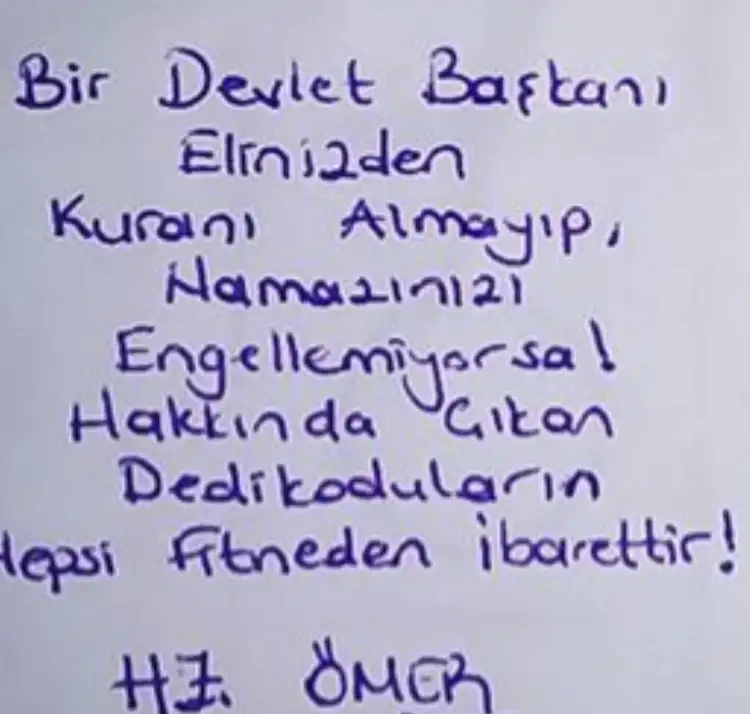 Bir Devlet Başkanı
Elinizden
Kuranı Almayıp,
Namazınızı
Engellemiyorsa!
Hakkında Çıkan
Dedikoduların
Hepsi fitneden ibarettir!
HZ. ÖMER